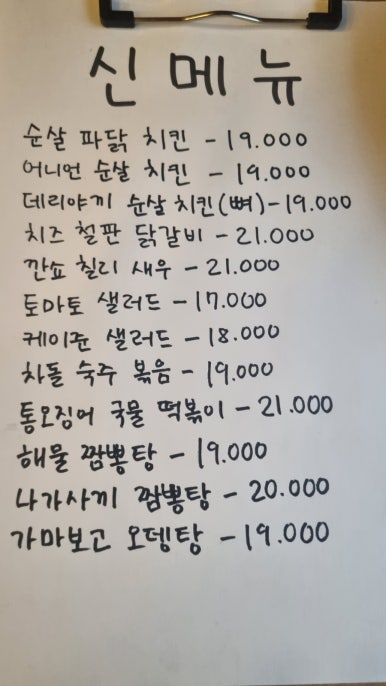 신메뉴
순살 파닭 치킨 - 19.000
어니언 순살 치킨 - 19.000
데리야끼 순살 치킨(뼈) - 19.000
치즈 철판 닭갈비 - 21.000
깐쇼 칠리 새우 - 21.000
토마토 샐러드 - 17.000
케이준 샐러드 - 18.000
차돌 숙주 볶음 - 19.000
통오징어 국물 떡볶이 - 21.000
해물 짬뽕탕 - 19.000
나가사끼 짬뽕탕 - 20.000
가마보고 오뎅탕 - 19.000